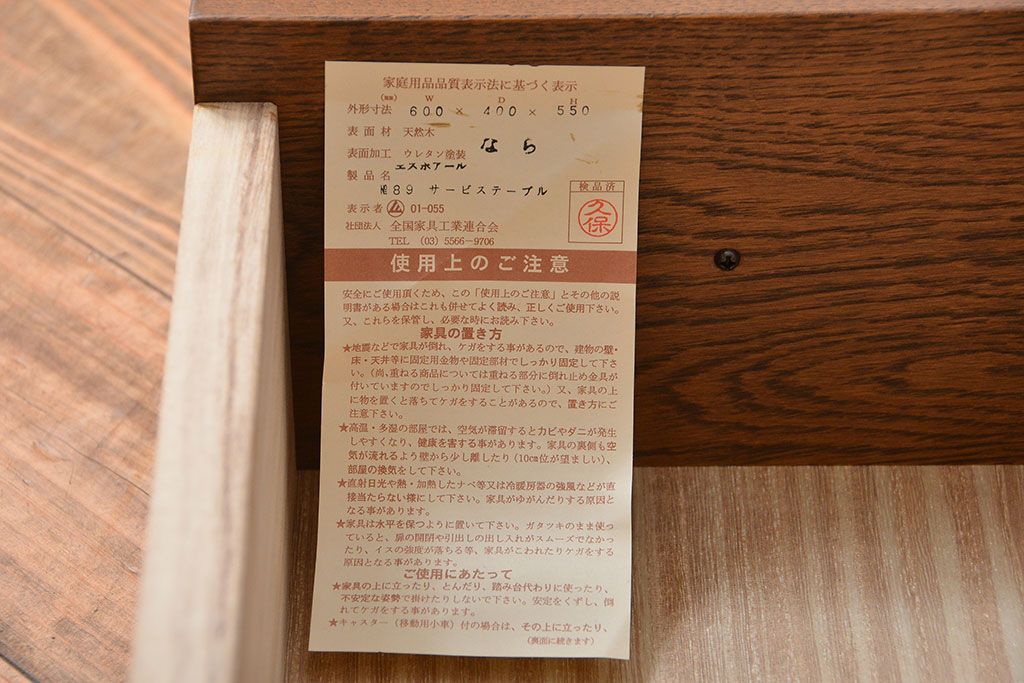 家庭用品品質表示法に基づく表示
(㎜) W D H
外形寸法 600 × 400 × 550
表面材 天然木
なら
表面加工 ウレタン塗装
エスポアール
製品名
№89 サービステーブル
検品済
久保
表示者 01-055
社団法人 全国家具工業連合会
TEL (03) 5566-9706
使用上のご注意
安全にご使用頂くため、この「使用上のご注意」とその他の説
明書がある場合はこれも併せてよく読み、正しくご使用下さい。
又、これらを保管し、必要な時にお読み下さい。
家具の置き方
★地震などで家具が倒れ、ケガをする事があるので、建物の壁・
床・天井等に固定用金物や固定部材でしっかり固定して下さ
い。(尚、重ねる商品については重ねる部分に倒れ止め金具が
付いていますのでしっかり固定して下さい。)又、家具の上
に物を置くと落ちてケガをすることがあるので、置き方にご
注意下さい。
★高温・多湿の部屋では、空気が滞留するとカビやダニが発生
しやすくなり、健康を害する事があります。家具の裏側も空
気が流れるよう壁から少し離したり(10㎝位が望ましい)、
部屋の換気をして下さい。
★直射日光や熱・加熱したナベ等又は冷暖房器の強風などが直
接当たらない様にして下さい。家具がゆがんだりする原因と
なる事があります。
★家具は水平を保つように置いて下さい。ガタツキのまま使っ
ていると、扉の開閉や引出しの出し入れがスムーズでなかっ
たり、イスの強度が落ちる等、家具がこわれたりケガをする
原因となる事があります。
ご使用にあたって
★家具の上に立ったり、とんだり、踏み台代わりに使ったり、
不安定な姿勢で掛けたりしないで下さい。安定をくずし、倒
れてケガをする事があります。
★キャスター(移動用小車)付の場合は、その上に立ったり、
(裏面に続きます)